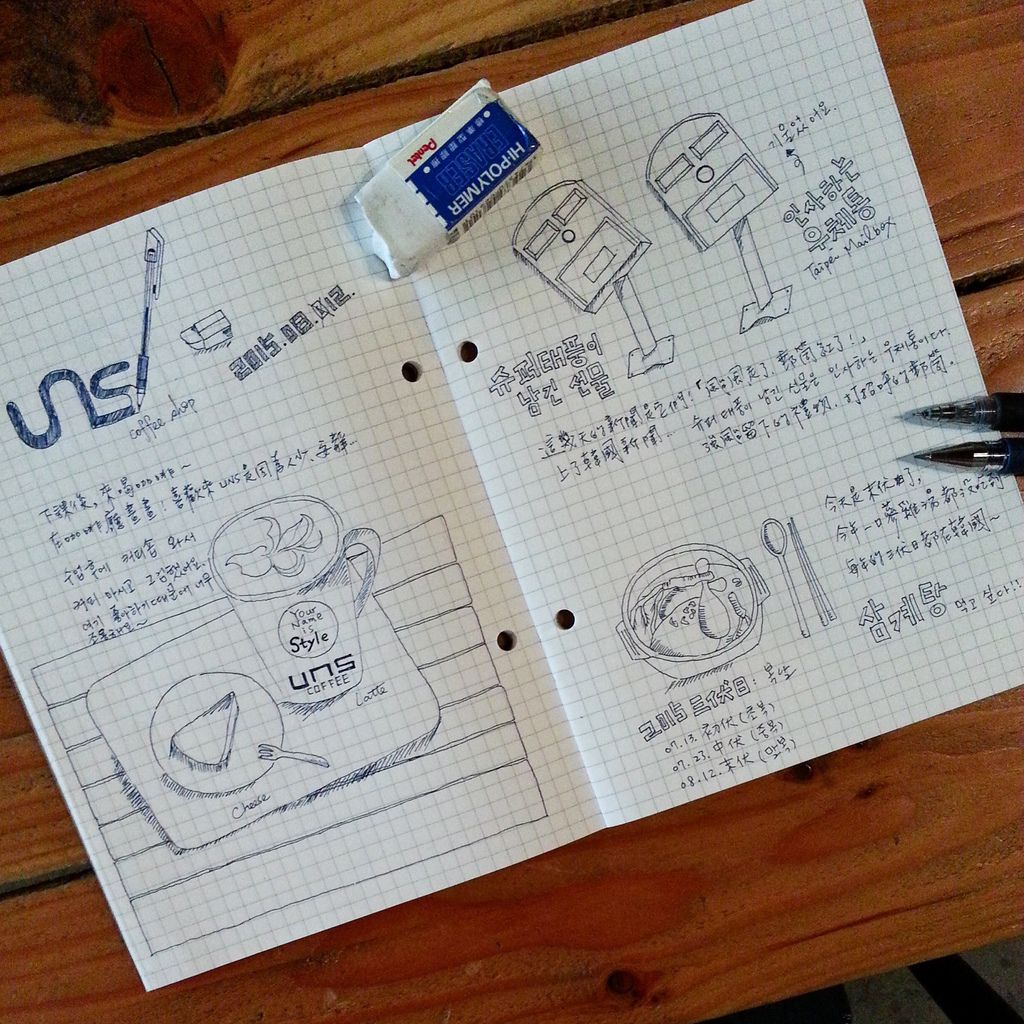 uns
coffee shop
2015.08.12.
下課後，來喝咖啡~
在咖啡廳畫畫！喜歡來UNS是因為人少，安靜...
수업 후에 커피숍 와서
커피 마시고 그림했어요.
여기 좋아하기 때문에 너무
조용해요~
Your
Name
is
Style
uns
COFFEE
Latte
Cheese
Pentel
HI-POLYMER
ERASER
기울었어요.
인사하는
우체통
Taipei Mailbox
슈퍼태풍이
남긴 선물
這幾天的新聞是它們！「風颱走了，郵筒紅了！」
上了韓國新聞... 슈퍼태풍이 남긴 선물은 인사하는 우체통이다.
強風留下的禮物，打招呼的郵筒
今天是末伏日了，
今年一口蔘雞湯都沒吃到
每年的三伏日都在韓國~
삼계탕 먹고 싶다!!
2015 三伏日: 복날
07.13. 初伏 (초복)
07.23. 中伏 (중복)
08.12. 末伏 (말복)